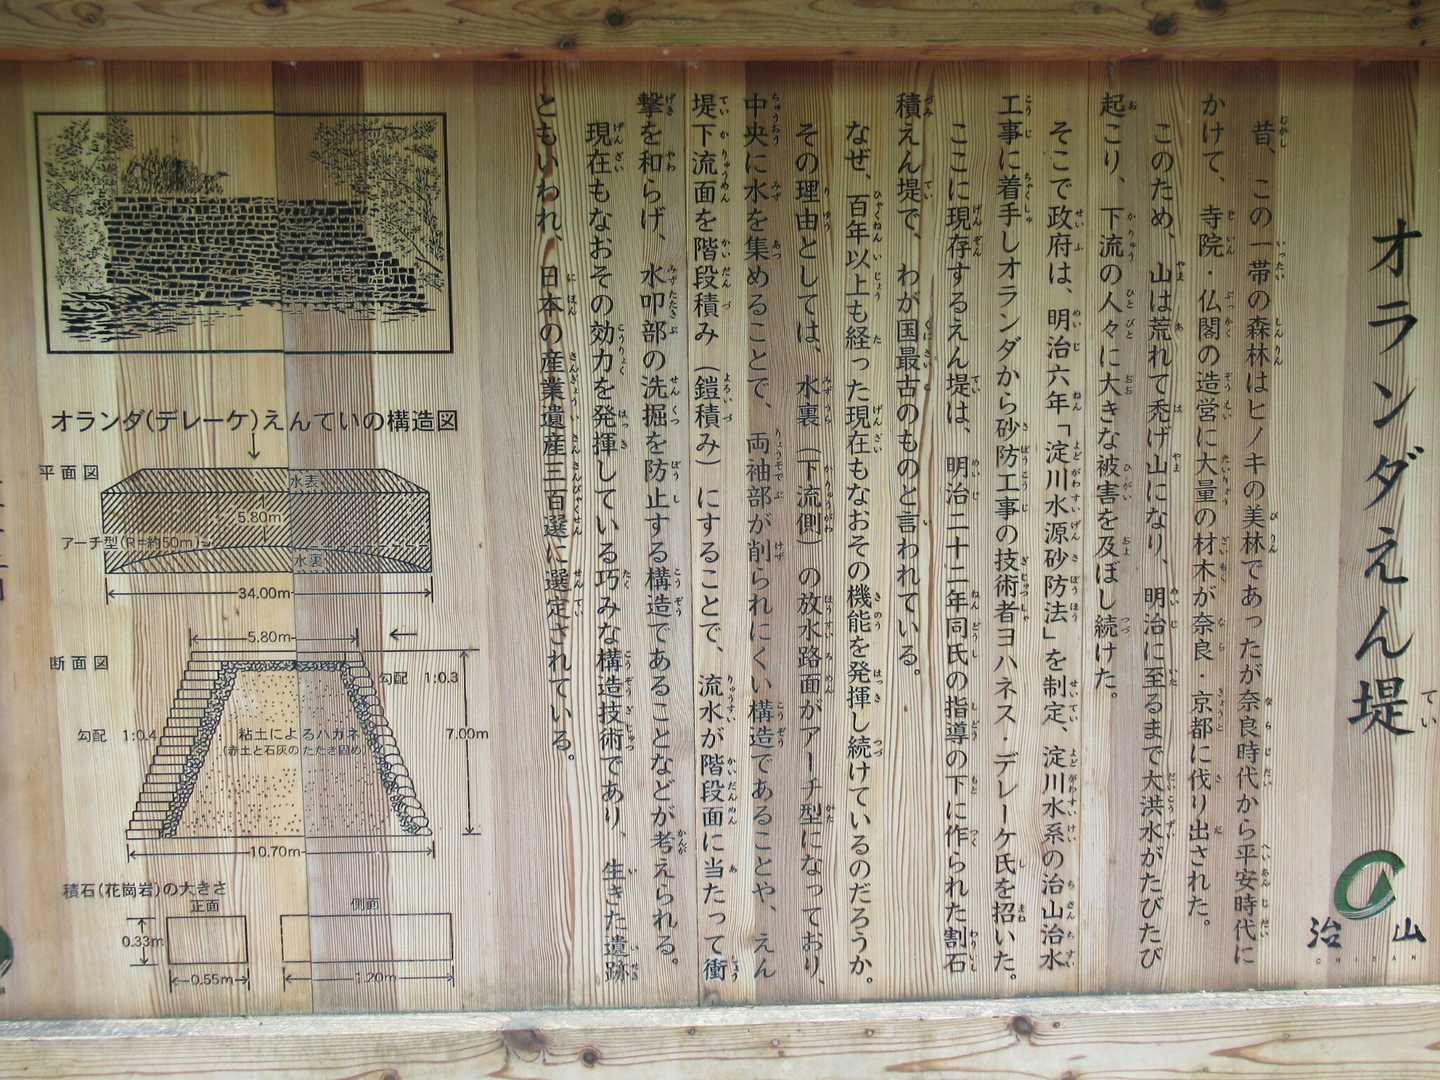 オランダえん堤
昔、この一帯の森林はヒノキの美林であったが奈良時代から平安時代に
かけて、寺院・仏閣の造営に大量の材木が奈良・京都に伐り出された。
このため、山は荒れて禿げ山になり、明治に至るまで大洪水がたびたび
起こり、下流の人々に大きな被害を及ぼし続けた。
そこで政府は、明治六年「淀川水源砂防法」を制定、淀川水系の治山治水
工事に着手しオランダから砂防工事の技術者ヨハネス・デレーケ氏を招いた。
ここに現存するえん堤は、明治二十二年同氏の指導の下に作られた割石
積えん堤で、わが国最古のものと言われている。
なぜ、百年以上も経った現在もなおその機能を発揮し続けているのだろうか。
その理由としては、水裏（下流側）の放水路面がアーチ型になっており、
中央に水を集めることで、両袖部が削られにくい構造であることや、えん
堤下流面を階段積み（鎧積み）にすることで、流水が階段面に当たって衝
撃を和らげ、水叩部の洗掘を防止する構造であることなどが考えられる。
現在もなおその効力を発揮している巧みな構造技術であり、生きた遺跡
ともいわれ、日本の産業遺産三百選に選定されている。
治山
CHISAN
オランダ(デレーケ)えんていの構造図
平面図
水表
5.80m
アーチ型(R=約50m)
水裏
34.00m
5.80m
断面図
勾配 1:0.3
勾配 1:0.4
粘土によるハガネ
(赤土と石灰のたたき固め)
7.00m
10.70m
積石(花崗岩)の大きさ
正面
側面
0.33m
0.55m
1.20m